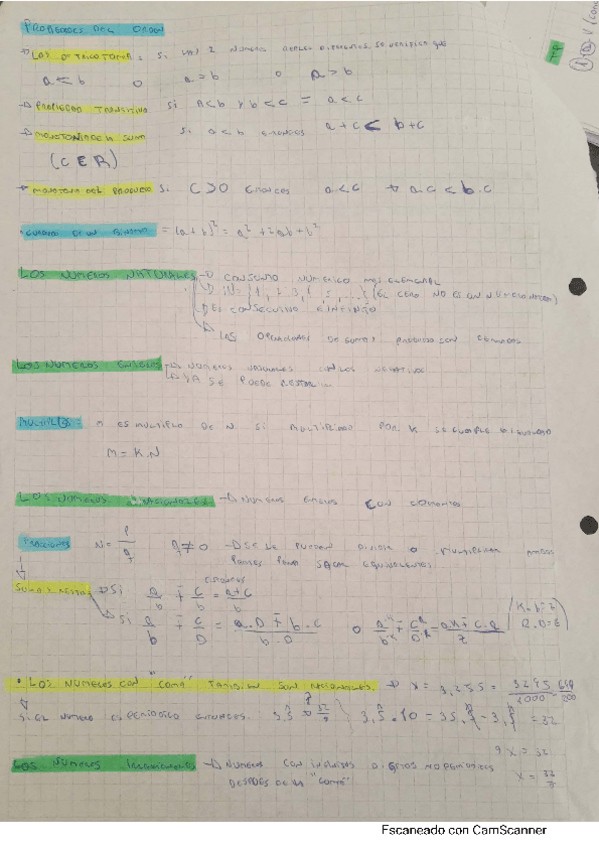 PROPIEDADES DEL ORDEN
→ LAS DE TRICOTOMIA: SI HAY 2 NUMEROS REALES SE VERIFICA QUE
a < b o a = b o a > b
→ PROPIEDAD TRANSITIVA SI a < b Y b < c = a < c
→ MONOTONIA DE LA SUMA SI a < b ENTONCES a + c < b + c
(C ∈ R)
→ MONOTONIA DEL PRODUCTO SI C > 0 ENTONCES a < c → a.c < b.c
CUADRADO DE UN BINOMIO = (a + b)² = a² + 2ab + b²
LOS NUMEROS NATURALES → CONJUNTO NUMERICO MAS ELEMENTAL
(EL CERO NO ES UN NUMERO)
→ ES CONSECUTIVO E INFINITO
→ LAS OPERACIONES DE SUMA Y PRODUCTO SON CERRADAS
LOS NUMEROS ENTEROS → LOS NUMEROS NATURALES CON LOS NEGATIVOS
→ YA SE PUEDE RESTAR
MULTIPLOS = M ES MULTIPLO DE N SI MULTIPLICADO POR K SE CUMPLE LA IGUALDAD
M = K.N
LOS NUMEROS RACIONALES → NUMEROS ENTEROS CON COCIENTES
FRACCIONES N = p/q q ≠ 0 → SE LE PUEDEN DIVIDIR O MULTIPLICAR AMBAS
PARTES PARA SACAR EQUIVALENTES
SUMA Y RESTA → SI a/b ∓ c/b = a+c/b
→ SI a/b ∓ c/D = a.D ∓ b.c / b.D
• LOS NUMEROS CON "COMA" TAMBIEN SON RACIONALES → X =
SI EL NUMERO ES PERIODICO ENTONCES 3,5 = 32/9 3,5 . 10 = 35,5 - 3,5 = 32
9 X = 32
LOS NUMEROS IRRACIONALES → NUMEROS CON INFINITOS DIGITOS NO PERIODICOS
DESPUES DE LA "COMA"
X = 32/9
Escaneado con CamScanner